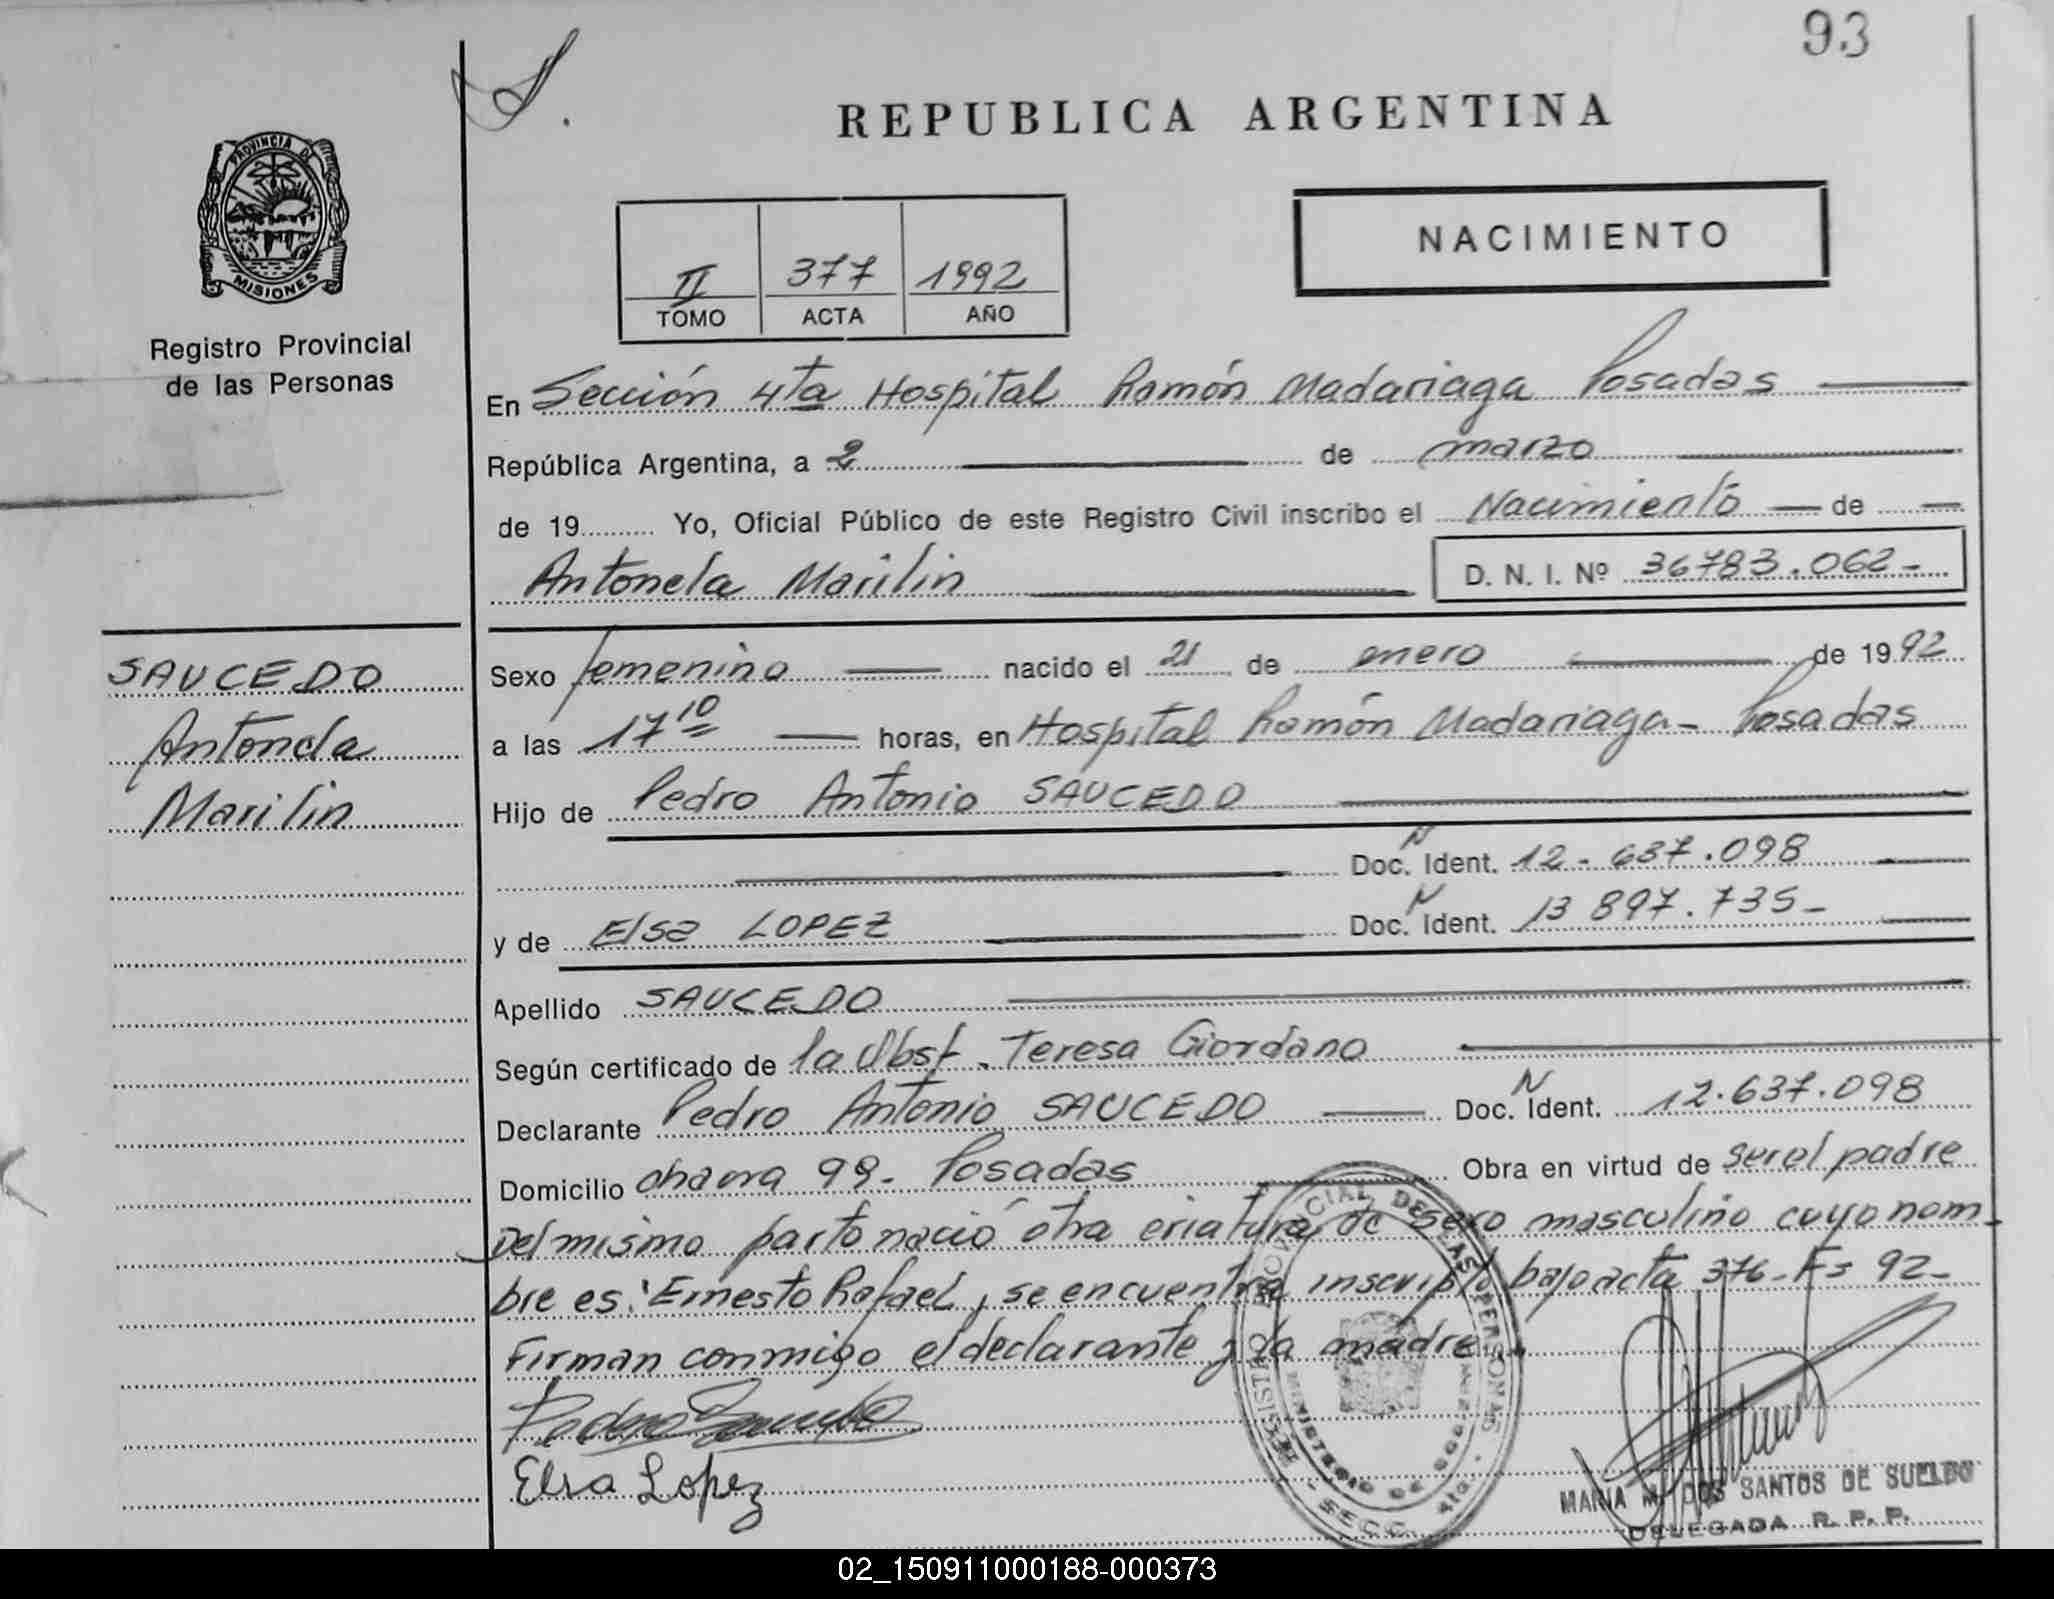 93
REPUBLICA ARGENTINA
PROVINCIA DE
MISIONES
Registro Provincial
de las Personas
NACIMIENTO
II 377 1992
TOMO ACTA AÑO
En Sección 4ta Hospital Ramón Madariaga Posadas
República Argentina, a 2 de marzo
de 19 Yo, Oficial Público de este Registro Civil inscribo el Nacimiento de
Antonela Marilin D. N. I. Nº 36783.062-
SAUCEDO
Antonela
Marilin
Sexo femenino nacido el 21 de enero de 1992
a las 17 10 horas, en Hospital Ramón Madariaga - Posadas
Hijo de Pedro Antonio SAUCEDO
Doc. N Ident. 12-637.098
y de Elsa LOPEZ Doc. N Ident. 13 897.735-
Apellido SAUCEDO
Según certificado de la Obst. Teresa Giordano
Declarante Pedro Antonio SAUCEDO Doc. N Ident. 12.637.098
Domicilio chacra 99- Posadas Obra en virtud de ser el padre
Del mismo parto nació otra criatura de sexo masculino cuyo nom-
bre es: Ernesto Rafael, se encuentra inscripto bajo acta 376- Fs 92-
Firman conmigo el declarante y la madre.
Pedro Saucedo
Elsa Lopez
REGISTRO PROVINCIAL DE LAS PERSONAS
MINISTERIO DE GOB
SECC. 4ta.
MARIA M. DOS SANTOS DE SUELDO
DELEGADA R. P. P.
02_150911000188-000373